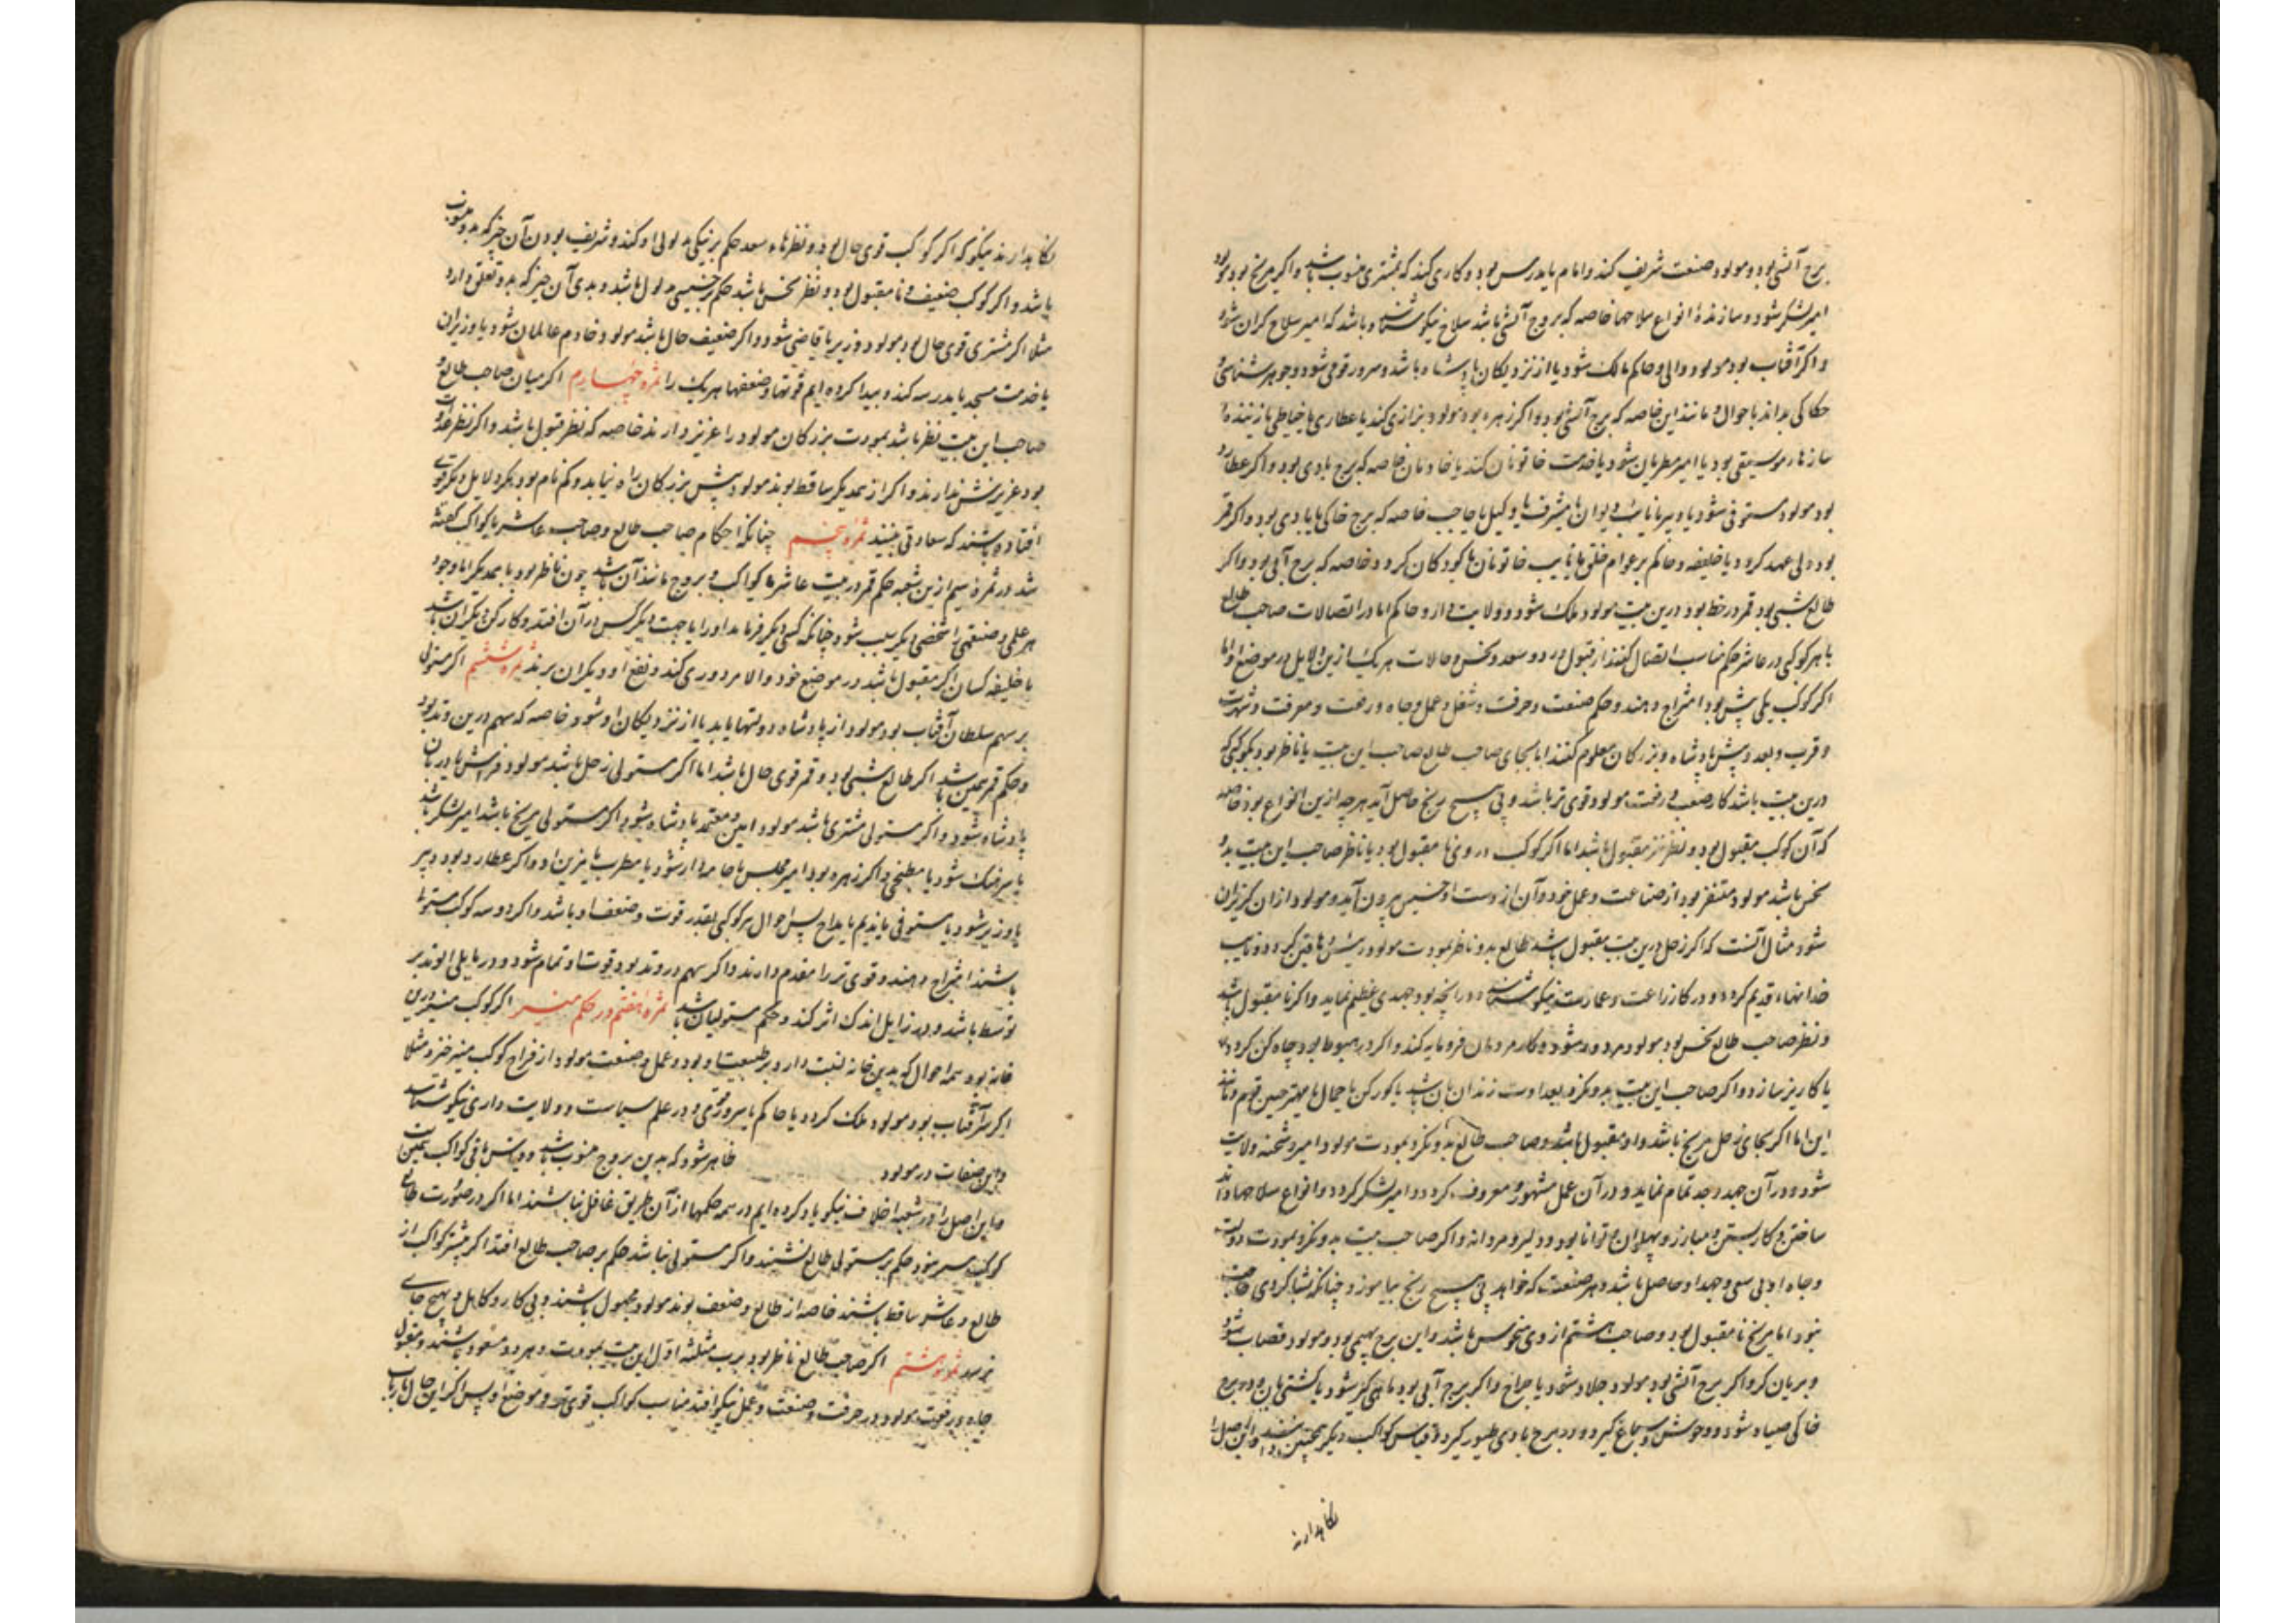 برج آتشی بود و مولود صنعت شریف کند و امام یا مدرس بود و کاری کند که بمشتری منسوب باشد و اگر مریخ بود مولود
امیر لشکر شود و سازندهٔ انواع سلاحها خاصه که بروج آتشی باشد سلاح نیکو شناسد و باشد که امیر سلاح گران شود
و اگر آفتاب بود مولود والی و حاکم ملک شود یا از نزدیکان پادشاه باشد و سرور قومی شود و جوهر شناسی و
حکاکی بداند یا حوال و مانند این خاصه که برج آتشی بود و اگر زهره بود مولود بزازی کند یا عطاری یا خیاطی یا زنندهٔ
سازها، موسیقی بود یا امیر مطربان شود یا خدمت خاتونان کند یا خادمان خاصه که برج بادی بود و اگر عطارد
بود مولود مستوفی شود یا دبیر یا نایب دیوان یا مشرف یا وکیل یا حاجب خاصه که برج خاکی یا بادی بود و اگر قمر
بود ولی عهد گردد یا خلیفه و حاکم بر عوام خلق یا نایب خاتونان یا کودکان گردد خاصه که برج آبی بود و اگر
طالع شبی بود قمر در خط بود درین بیت مولود ملک شود و ولایت از و حاکم اما در اتصالات صاحب طالع
با هر کوکبی در عاشر حکم مناسب اتصال کنند از قبول و رد و سعد و نحس و حالات هر یک ازین دلایل در موضع او اما
اگر کوکب یکی بیش بود امتزاج دهند و حکم صنعت و حرفت و شغل و عمل و جاه و رفعت و معرفت و شهرت
و قرب و بعد پیش پادشاه و بزرگان معلوم کنند اما بجای صاحب طالع صاحب این بیت یا ناظر بود بکوکبی که
درین بیت باشد کار صعب و رفعت مولود قوی تر باشد و بی هیچ رنج حاصل آید هر چه ازین انواع بود خاصه
که آن کوکب مقبول بود و نظر نیز مقبول باشد اما اگر کوکب در وی نا مقبول بود یا ناظر صاحب این بیت بدو
نحس باشد مولود متنفر بود از صناعت و عمل خود و آن از دست او خسیس بیرون آید و مولود از آن گریزان
شود مثال آنست که اگر زحل درین بیت مقبول باشد و طالع بدو ناظر بمودت مولود رئیس دهاقین گردد و نایب
خدانها، قدیم گردد و در کار زراعت و عمارت نیکو شناسد و در آنچه بود جهدی عظیم نماید و اگر نا مقبول باشد
و نظر صاحب طالع نحس بود مولود مردود شود و کار مردمان فرومایه کند و اگر در هبوط بود چاه کن گردد
یا کاریز سازد و اگر صاحب این بیت بدو نگرد بعداوت زندان بان باشد یا گورکن یا حمال یا مهتر خسیس قوم و مانند
این اما اگر بجای زحل مریخ باشد و او مقبول باشد و صاحب طالع بدو نگرد بمودت مولود امیر و شحنه ولایت
شود و در آن جهد و جد تمام نماید و در آن عمل مشهور و معروف گردد و امیر لشکر گردد و انواع سلاحها داند
ساختن و کار بستن و مبارز و پهلوان و توانا بود و دلیر و مردانه و اگر صاحب بیت بدو نگرد بمودت دولت
و جاه او بی سعی و جهد او حاصل باشد و هر صنعت که خواهد بی هیچ رنج بیاموزد چنانکه بشاگردی حاجت
نبود اما مریخ نا مقبول بود و صاحب هشتم از وی منحوس باشد و این برج بهیمی بود مولود قصاب شود
و بریان گر و اگر برج آتشی بود مولود جلاد شود یا جراح و اگر برج آبی بود ماهی گیر شود یا کشتی بان و در برج
خاکی صیاد شود و وحوش و سباع گیرد و در برج بادی طیور گیرد و قیاس کواکب دیگر همچنین و این اصل را
نگاهدارند
نگاهدارند نیکو که اگر کوکب قوی حال بود و نظرها، سعد حکم بر نیکی مدلول او کند و شریف بودن آن چیز که بدو منسوب
باشد و اگر کوکب ضعیف و نا مقبول بود و نظر نحس باشد حکم بر خسیسی مدلول باشد و بدی آن چیز که بدو تعلق دارد
مثلا اگر مشتری قوی حال بود مولود وزیر یا قاضی شود و اگر ضعیف حال باشد مولود خادم عالمان شود یا وزیران
یا خدمت مسجد یا مدرسه کند و پیدا کرده ایم قوتها و ضعفها هر یک را ثمره چهارم اگر میان صاحب طالع و
صاحب این بیت نظر باشد بمودت بزرگان مولود را عزیز دارند خاصه که نظر قبول باشد و اگر نظر عداوت
بود عزیزش ندارند و اگر از یکدیگر ساقط بوند مولود پیش بزرگان راه نیابد و گم نام بود مگر دلایل دیگر قوی
افتاده باشند که سعادتی بینند ثمره پنجم چنانکه احکام صاحب طالع و صاحب عاشر با کواکب گفته
شد در ثمرهٔ سیم ازین شعبه حکم قمر در بیت عاشر با کواکب و بروج مانند آن باشد چون ناظر بود با یکدیگر اما وجود
هر علمی و صنعتی را شخصی دیگر سبب شود چنانکه کسی دیگر فرماید او را یا جهت دیگر کس در آن افتد و کارکن دیگران باشد
یا خلیفه کسان اگر مقبول باشد در موضع خود و الا مزدوری کند و نفع او دیگران برند ثمره ششم اگر مستولی
بر سهم سلطان آفتاب بود مولود از پادشاه دولتها یابد یا از نزدیکان او شود خاصه که سهم درین وتد بود
و حکم قمر همین باشد اگر طالع شبی بود و قمر قوی حال باشد اما اگر مستولی زحل باشد مولود فراش یا دربان
پادشاه شود و اگر مستولی مشتری باشد مولود امین و معتمد پادشاه شود و اگر مستولی مریخ باشد امیر لشکر باشد
یا سرهنگ شود یا مطبخی و اگر زهره بود امیر مجلس یا جامه دار شود یا مطرب یا مزین او و اگر عطارد بود دبیر
یا وزیر شود یا مستوفی یا ندیم یا مداح پس احوال هر کوکبی بقدر قوت و ضعف او باشد و اگر دو سه کوکب مستولی
باشند امتزاج دهند و قوی تر را مقدم دارند و اگر سهم در وتد بود قوت او تمام شود و در مایلی الوتد بر
توسط باشد و در زایل اندک اثر کند و حکم مستولیان باشد ثمره هفتم در حکم منیر اگر کوکب منیر درین
خانه بود همه احوال که بدین خانه نسبت دارد بر طبیعت او بود و عمل و صنعت مولود از مزاج کوکب منیر خیزد مثلا
اگر آفتاب بود مولود ملک گردد یا حاکم یا سرور قومی و در علم سیاست و ولایت داری نیکو شناسد
و این صفات در مولود ظاهر شود که بدین بروج منسوب باشد و قیاس باقی کواکب همین
و این اصل را در شعبه اخلاف نیکو یاد کرده ایم در همه حکمها از آن طریق غافل نباشند اما اگر در صورت طالع
کوکب منیر نبود حکم بر مستولی طالع نشینند و اگر مستولی نباشد حکم بر صاحب طالع افتد اگر بیشتر کواکب از
طالع و عاشر ساقط باشند خاصه از طالع و ضعیف بوند مولود مجهول باشند و بی کار و کاهل و بهیچ جای
نرسد ثمره هشتم اگر صاحب طالع ناظر بود برب مثلثه اول این بیت بمودت و هر دو مسعود باشند و مقبول
جاه و رفعت مولود در حرفت و صنعت و عمل نیکو افتد مناسب کواکب قوی تر و موضع او پس اگر این حال با رب